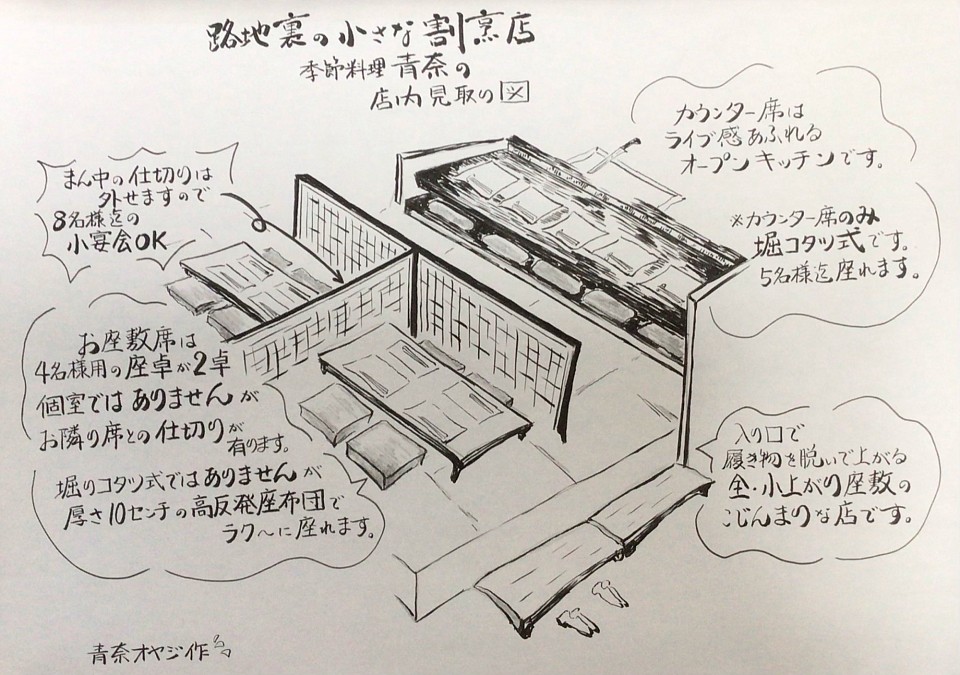 路地裏の小さな割烹店
季節料理 青奈の
店内見取り図
まん中の仕切りは
外せますので
8名様迄の
小宴会OK
カウンター席は
ライブ感あふれる
オープンキッチンです。
※カウンター席のみ
堀コタツ式です。
5名様迄座れます。
お座敷席は
4名様用の座卓が2卓
個室ではありませんが
お隣り席との仕切りが
有ります。
堀りコタツ式ではありませんが
厚さ10センチの高反発座布団で
ラク〜に座れます。
入り口で
履き物を脱いで上がる
全・小上がり座敷の
こじんまりな店です。
青奈オヤジ作